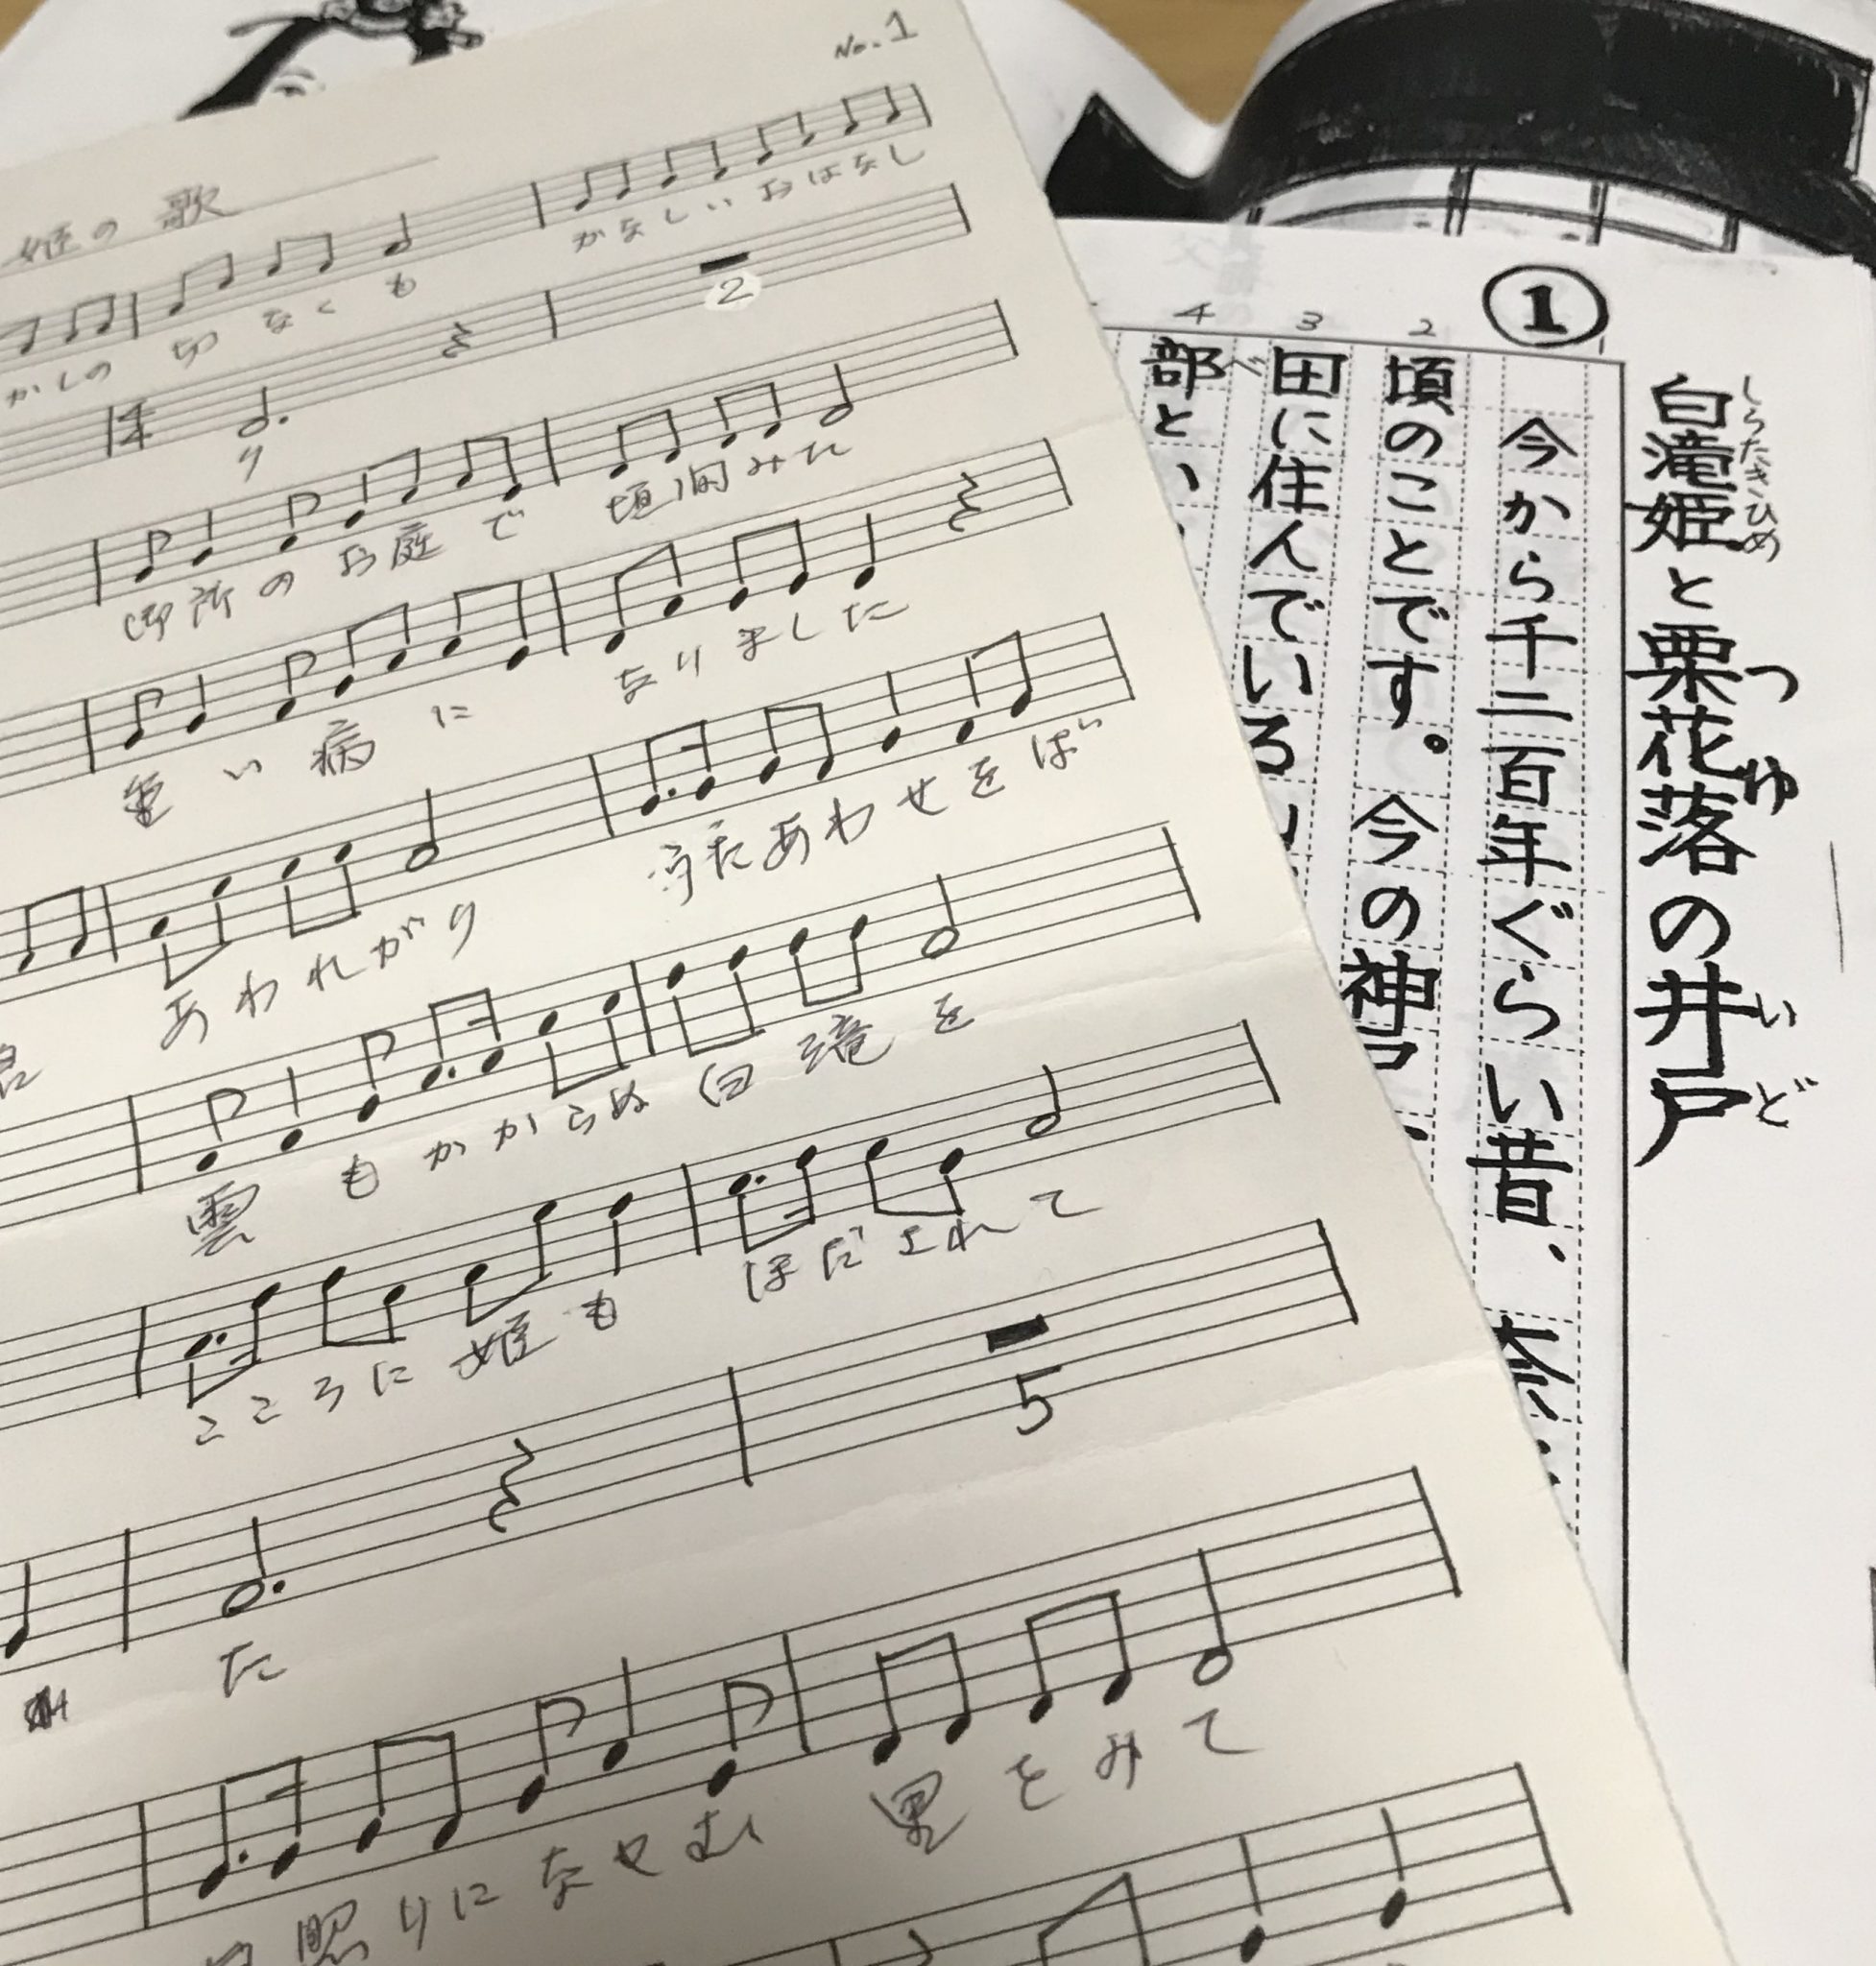 No.1
姫の歌
かなしいおはなし
かしの 切なくも
2
り
御所の お庭で 垣間みた
重い病に なりました
あわれがり うたあわせをば
雲もかからぬ 白滝を
こころに 姫も ほだされて
5
た
照りになやむ 里をみて
①
白滝姫と栗花落の井戸
しろたきひめ
つゆ
いど
今から千二百年ぐらい昔、奈
2
頃のことです。今の神戸
3
田に住んでいる山
4
部とい
べ